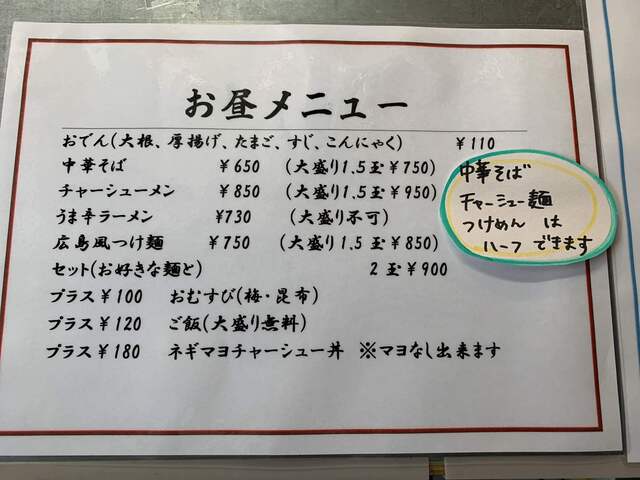 お昼メニュー
おでん(大根、厚揚げ、たまご、すじ、こんにゃく) ¥110
中華そば ¥650 (大盛り1.5玉¥750)
チャーシューメン ¥850 (大盛り1.5玉¥950)
うま辛ラーメン ¥730 (大盛り不可)
広島風つけ麺 ¥750 (大盛り1.5玉¥850)
セット(お好きな麺と) 2玉¥900
プラス¥100 おむすび(梅・昆布)
プラス¥120 ご飯(大盛り無料)
プラス¥180 ネギマヨチャーシュー丼 ※マヨなし出来ます
中華そば
チャーシュー麺
つけめん は
ハーフ できます